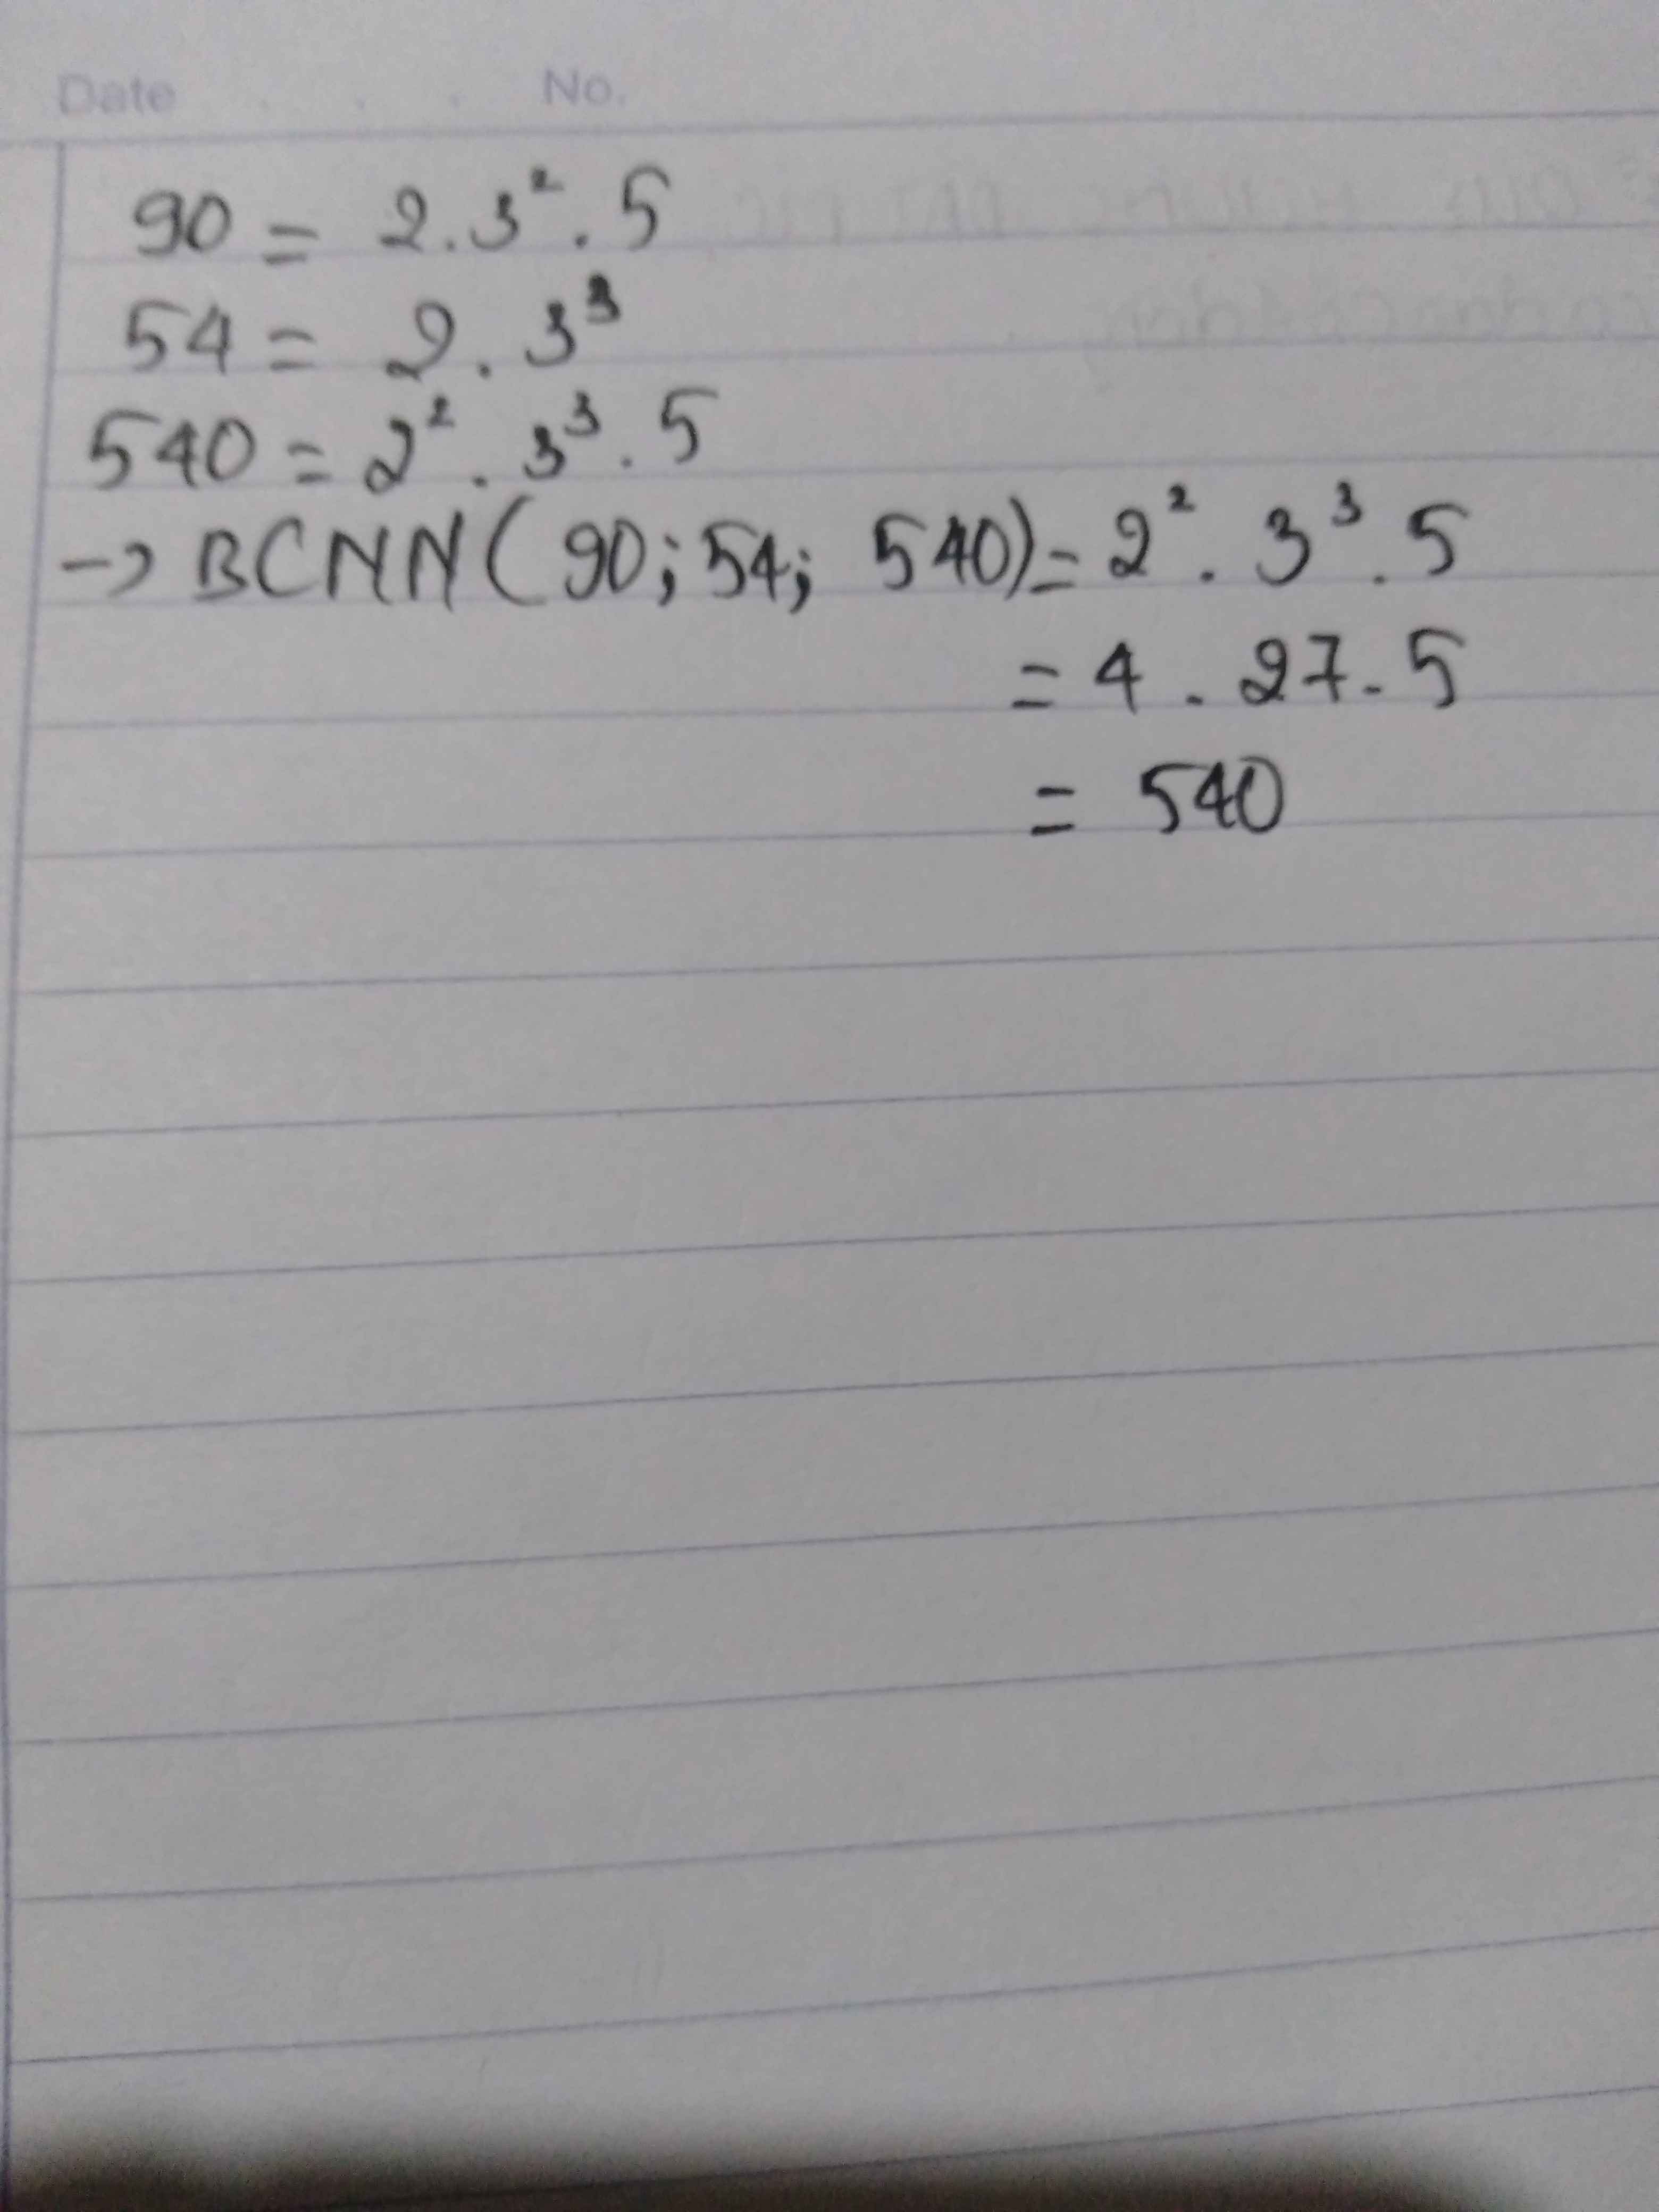 Date . . . No.
90 = 2.3².5
54 = 2.3³
540 = 2².3³.5
→ BCNN(90;54; 540) = 2².3³.5
= 4.27.5
= 540